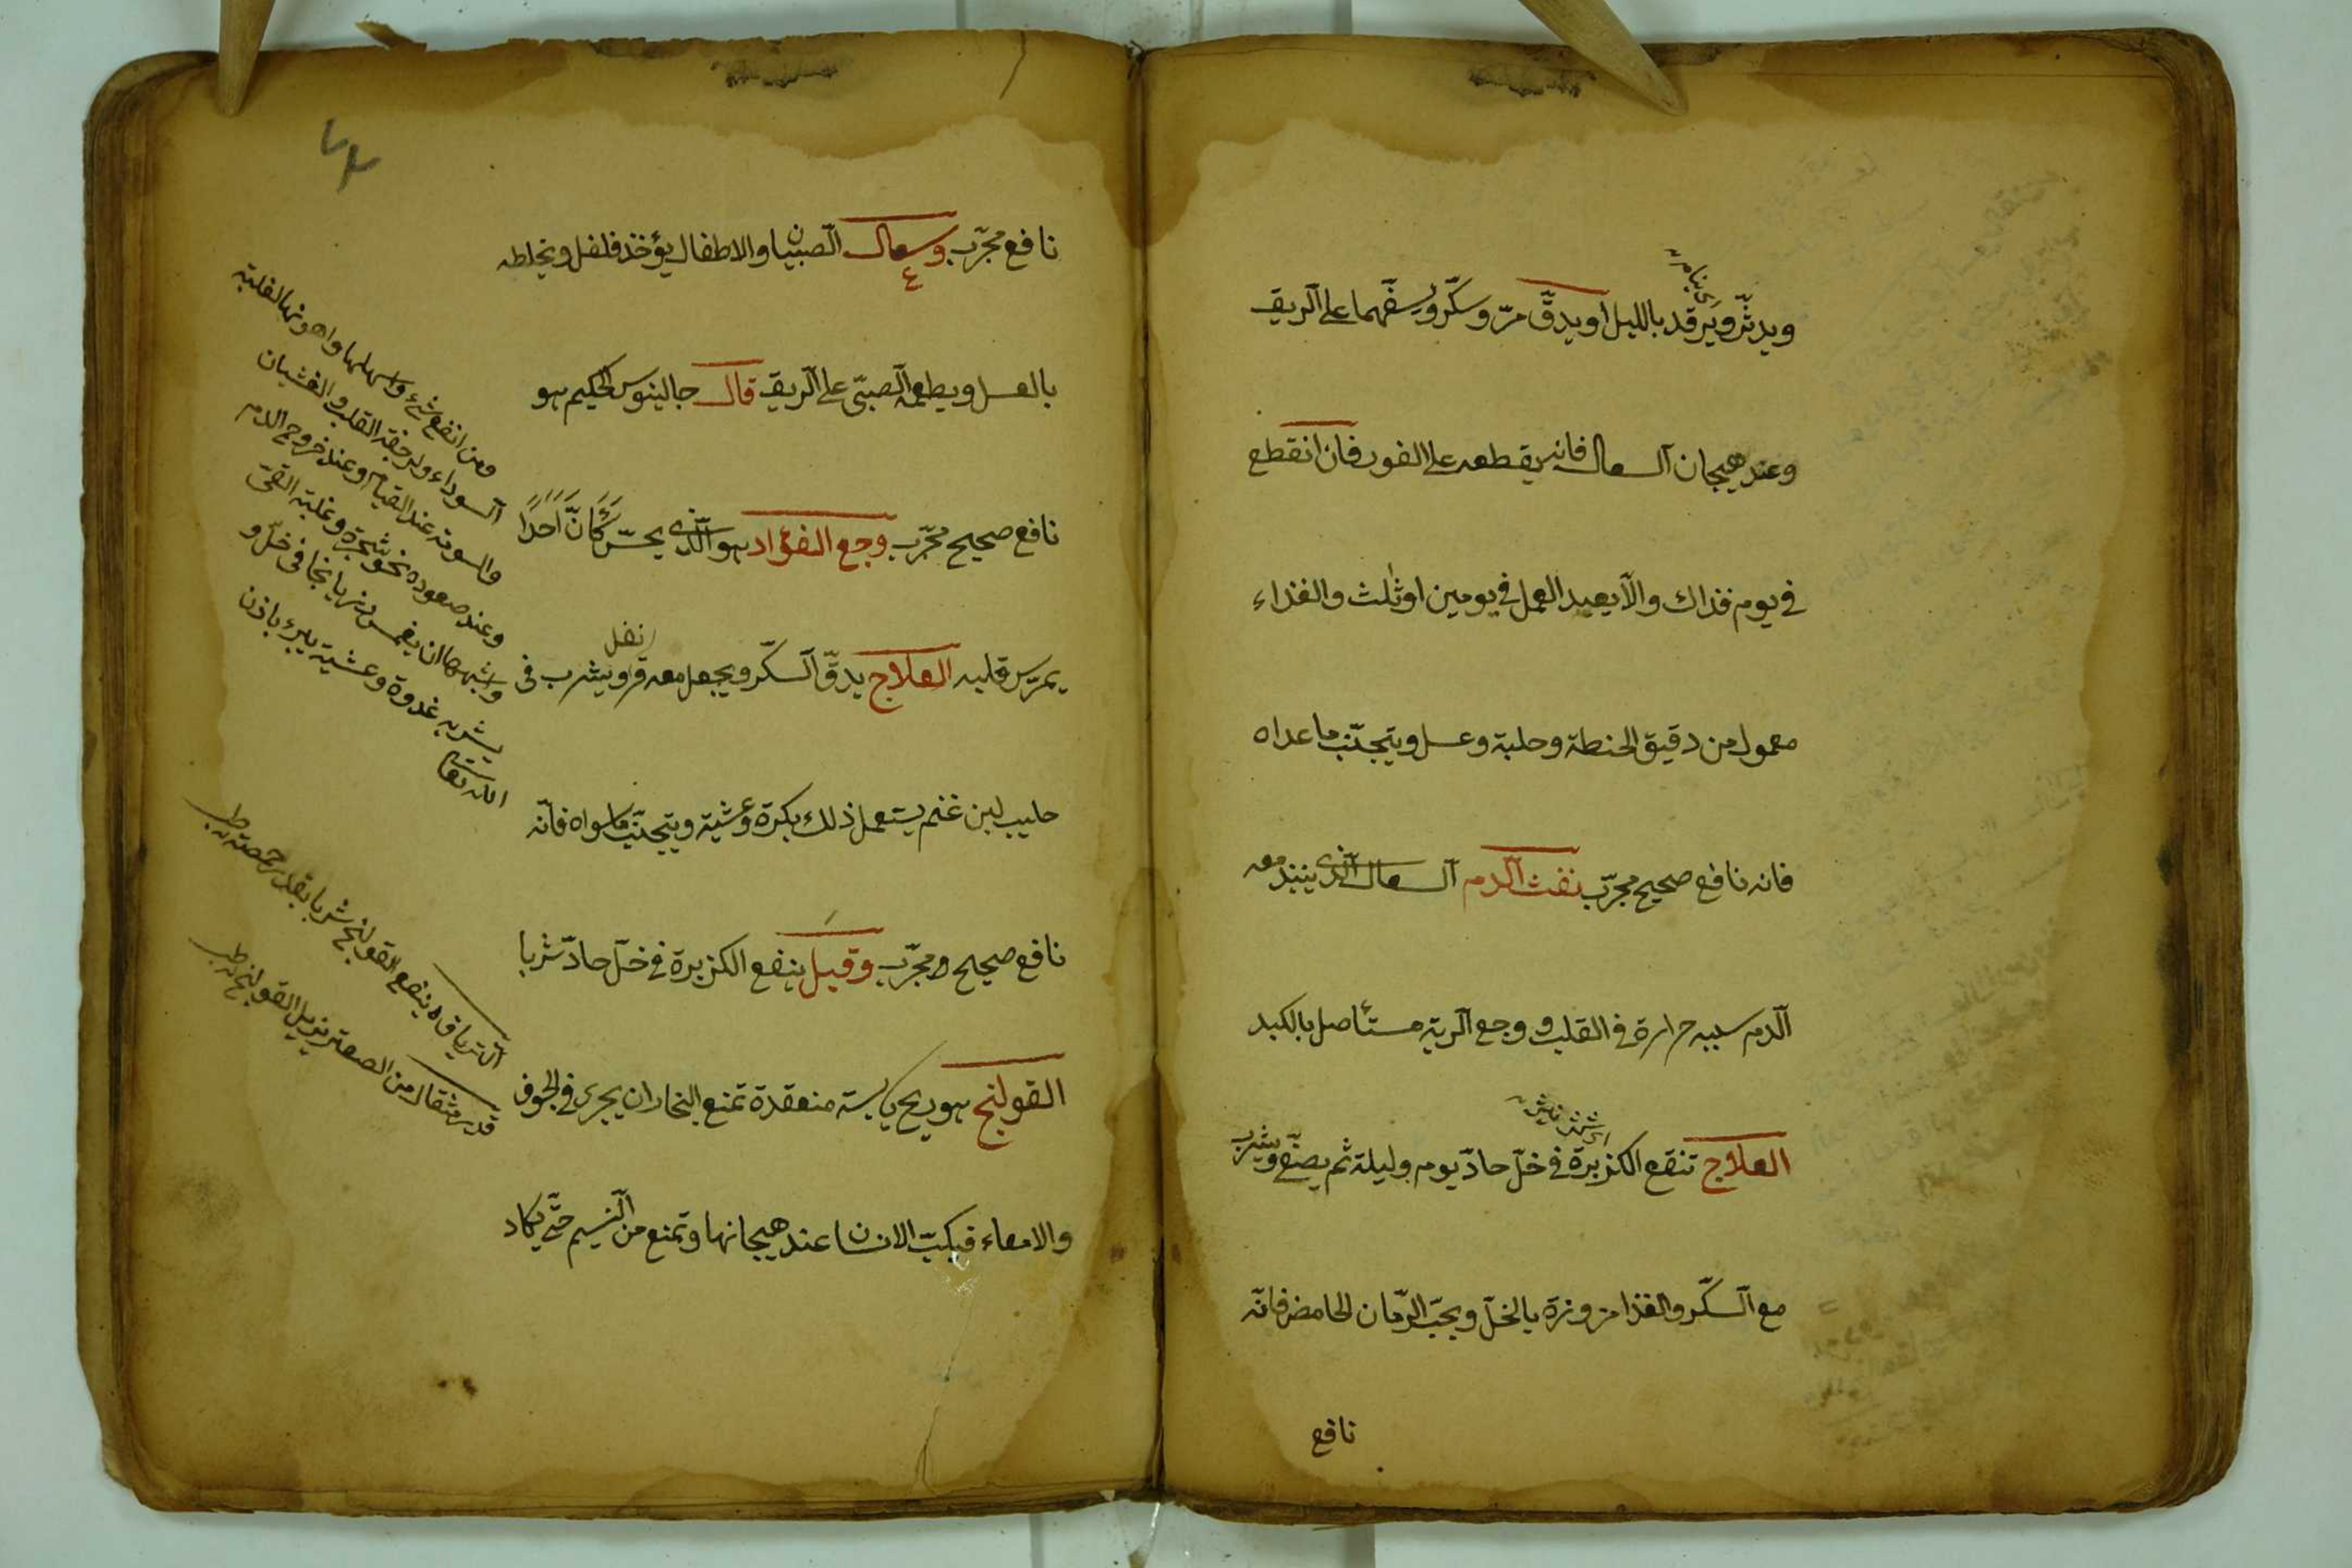 ويدثّر ويرقد بالليل او يدقّ مرّ وسكّر ويسفّهما على الريق
وعند هيجان السعال فانه يقطعه على الفور فان انقطع
في يوم فذاك والّا يعيد العمل في يومين او ثلث والغذاء
معمول من دقيق الحنطة وحلبة وعسل ويتجنّب ما عداه
فانه نافع صحيح مجرّب نفث الدم السعال الذى ينبذ معه
الدم سببه حرارة في القلب و وجع الرية مستأصل بالكبد
العلاج تنقع الكزبرة في خلّ حادّ يوم وليلة ثم يصفّى ويشرب
مع السكّر والغذا مزورة بالخلّ وبحبّ الرمّان الحامض فانّه
نافع
نافع مجرّب وسعال الصبيان والاطفال يؤخذ فلفل ويخلطه
بالعسل ويطعمه الصبىّ على الريق قال جالينوس الحكيم هو
نافع صحيح مجرّب وجع الفؤاد هو الّذى يحسّ كأنّ احدًا
يمرّس قلبه العلاج يدقّ السكّر ويجعل معه قر ويشرب فى
نفل
حليب لبن غنم يستعمل ذلك بكرة وعشية ويتجنّب ما سواه فانّه
نافع صحيح ومجرّب وقيل ينفع الكزبرة في خلّ حادّ شربا
القولنج هو ريح يابسة منعقدة تمنع البخار ان يجرى في الجوف
والامعاء فيكبّ الانسان عند هيجانها وتمنع من النسيم حتّى يكاد
ومن انفع شىء واسهلها واهونها لغلبة
السوداء ولرجفة القلب والغشيان
والسوفه عند القيام وعند خروج الدم
وعند صعوده نحو شجرة وغلبة القىّ
واشبهها ان يغمس رازيانجا فى خلّ و
يشربه غدوة وعشية يبرء باذن
الله تعا
الترياق ه ينفع القولنج شربا بقدر حمصة به ط
قدر مثقال من الصعتر يزيل القولنج به ط